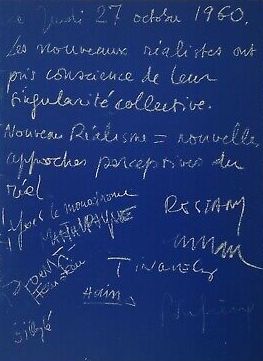 Le Jeudi 27 octobre 1960.
Les nouveaux réalistes ont
pris conscience de leur
singularité collective.
Nouveau Réalisme = nouvelles
approches perceptives du
réel
Yves le monochrome
RESTANY
Arman
Tinguely
Hains